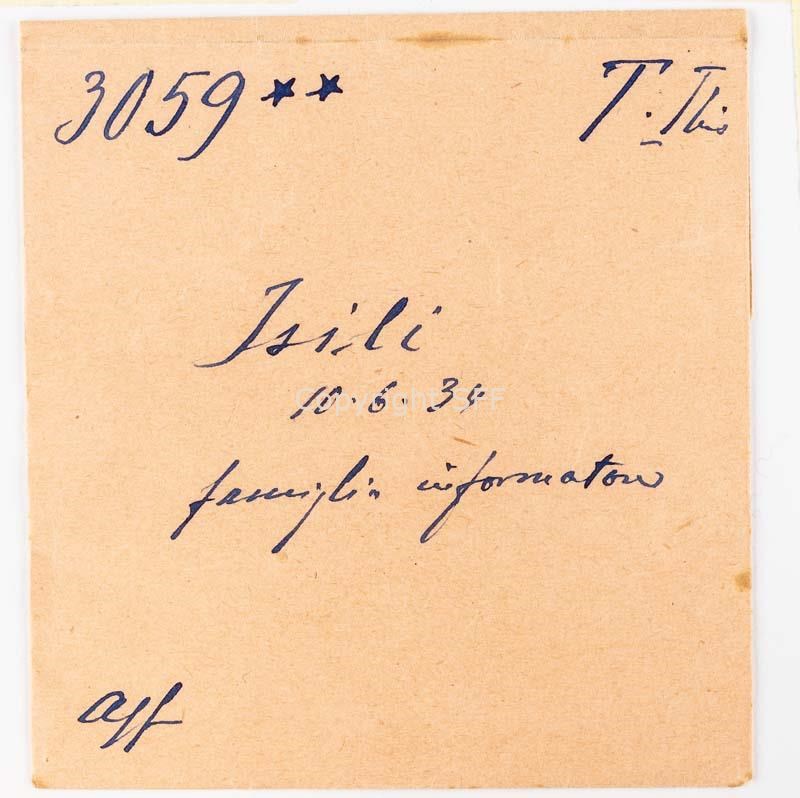 3059** T. This
Isili
10.6.34
famiglia informatore
Copyright SFF